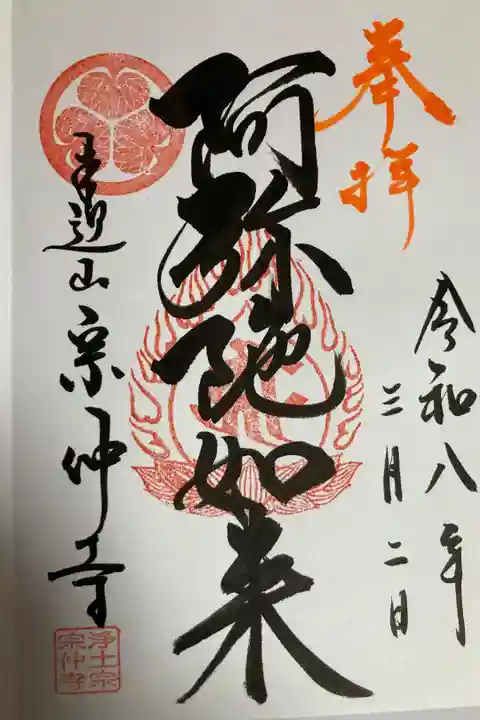 奉拝
令和八年
三月二日
阿弥陀如来
宗仲寺
浄土宗
宗仲寺